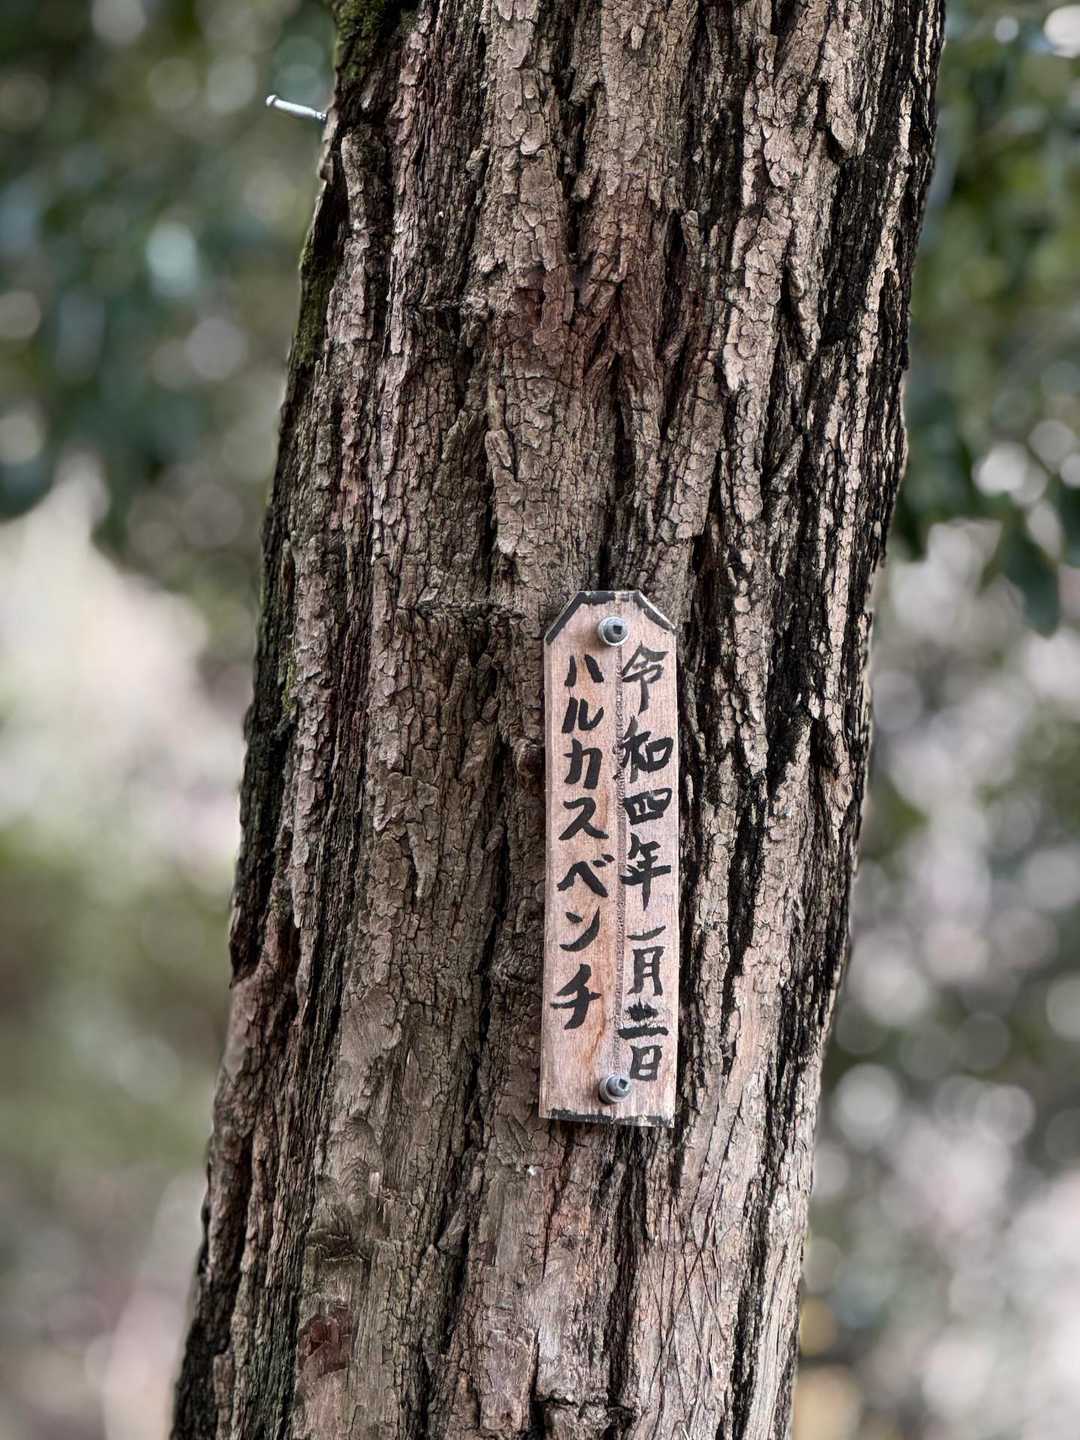 令和四年一月廿日
ハルカスベンチ